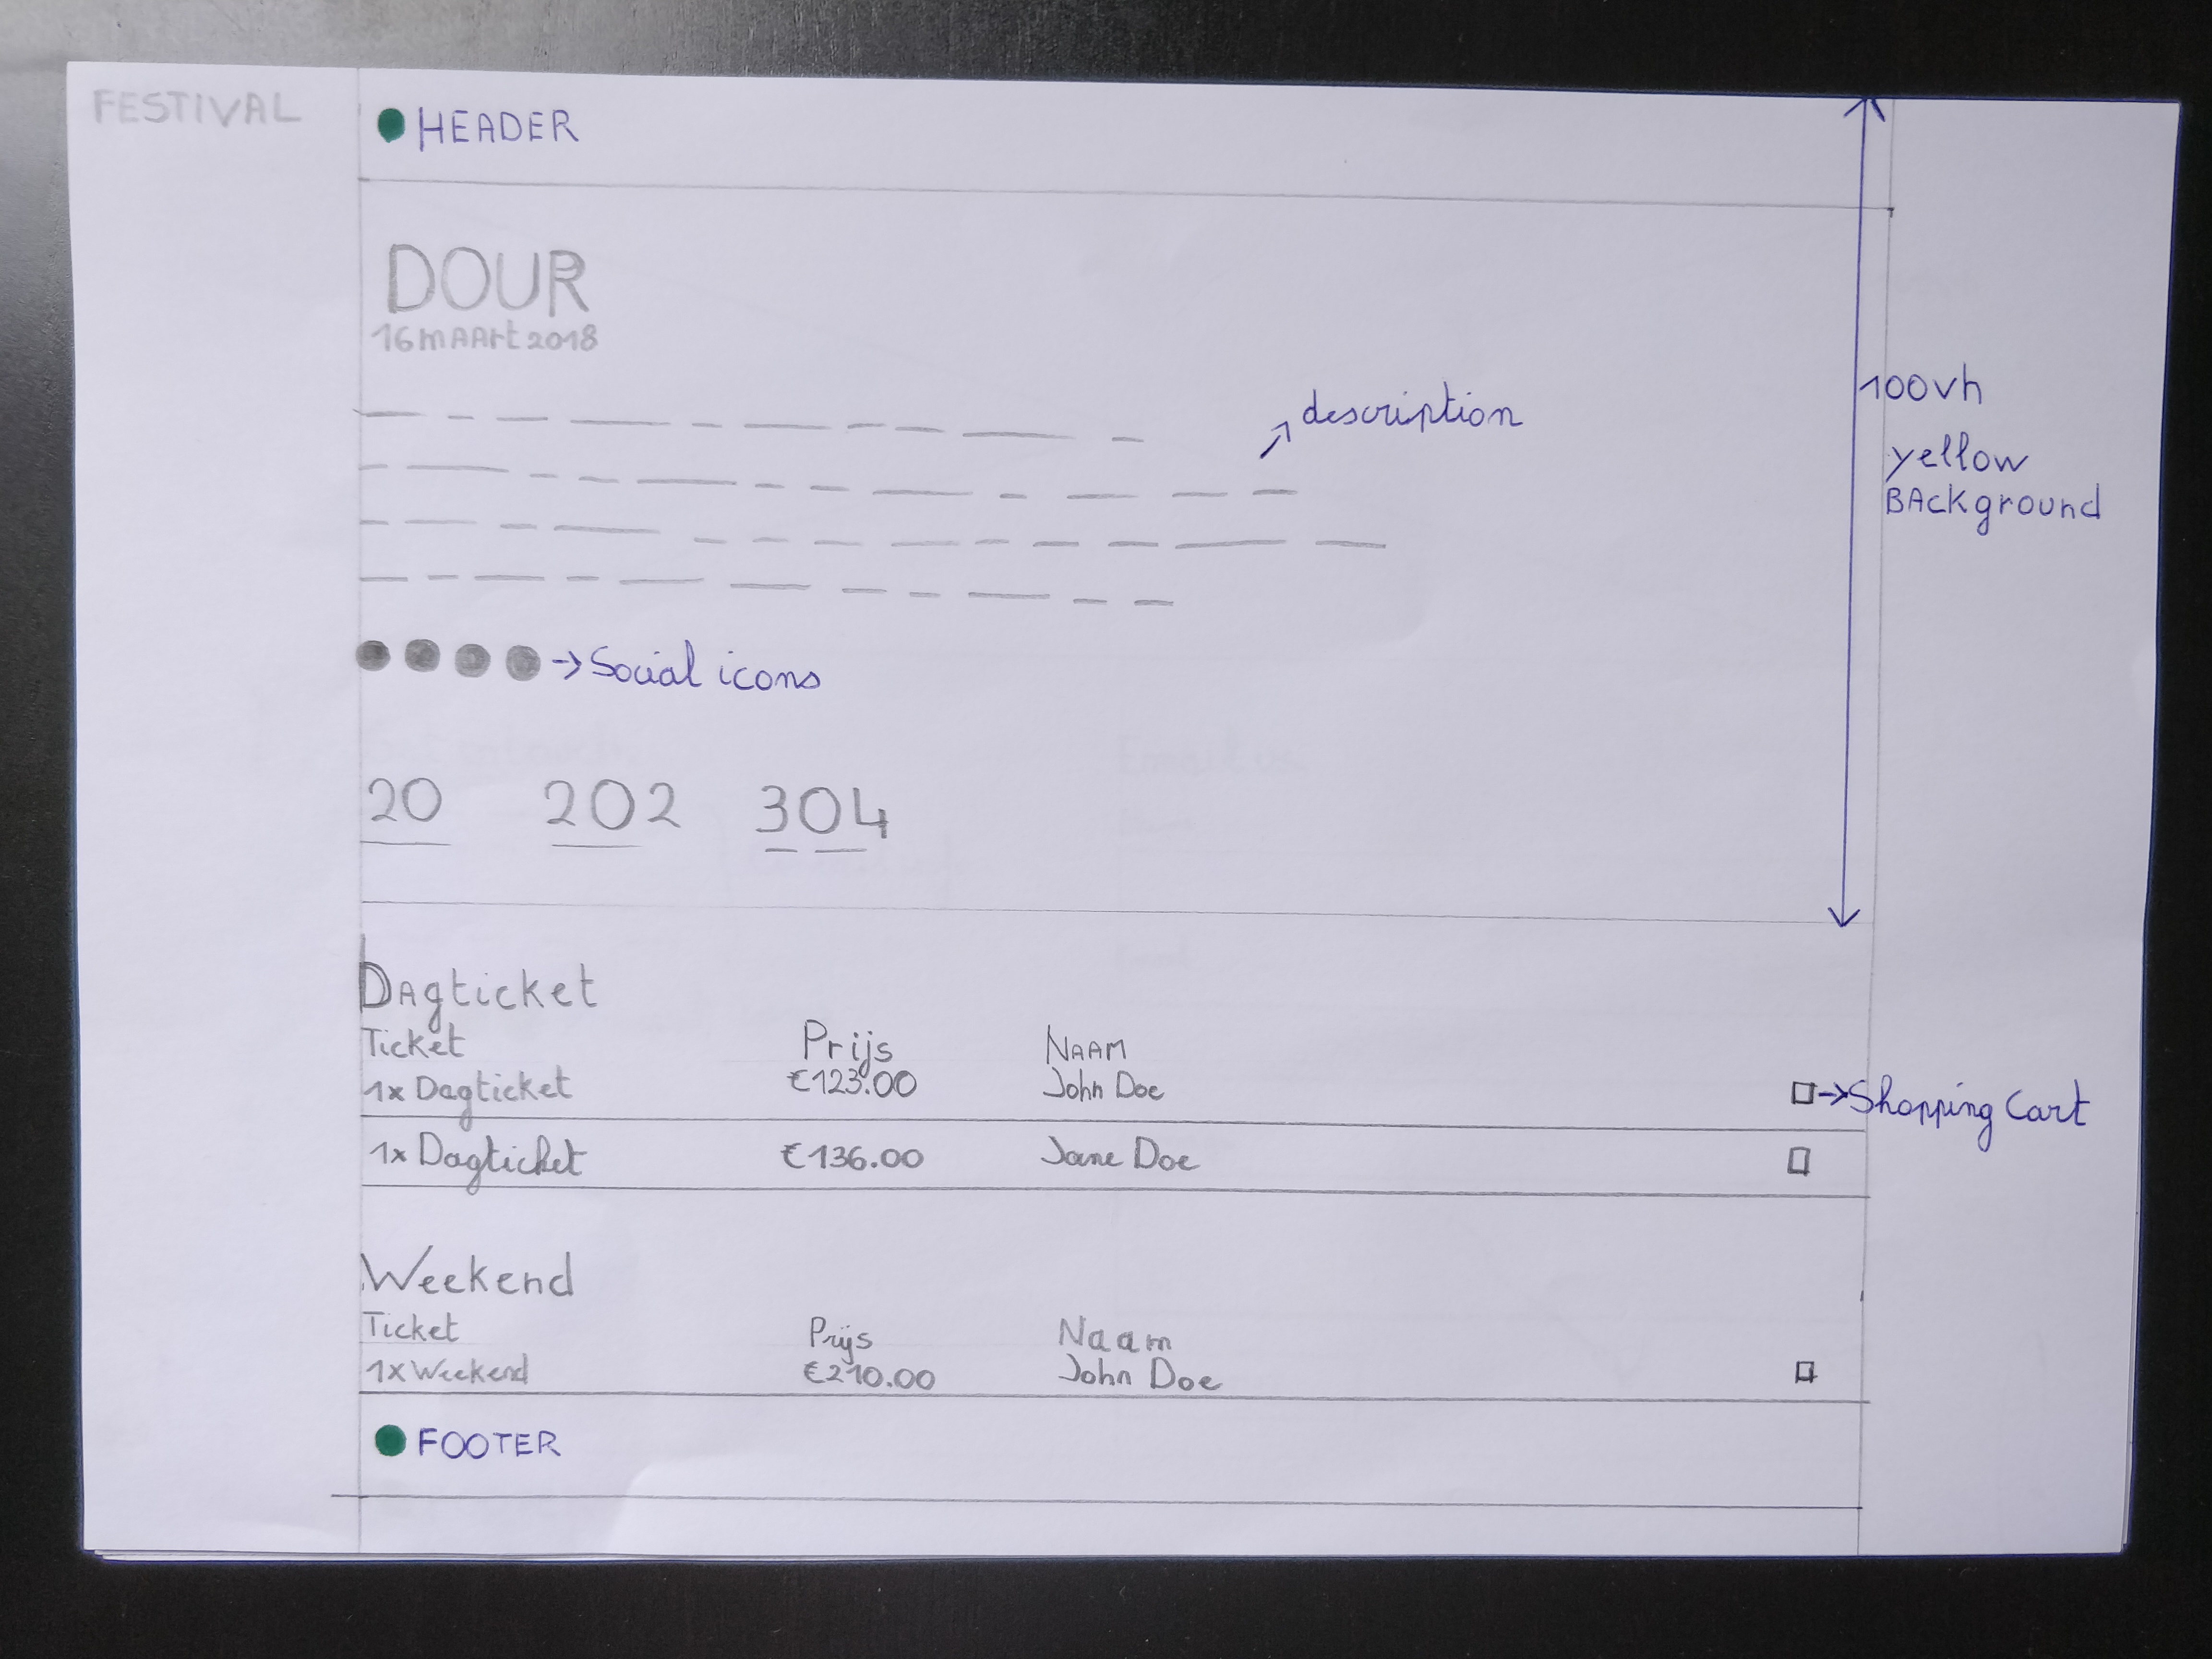 FESTIVAL
HEADER
DOUR
16 mAArt 2018
description
100vh
yellow
BAckground
Social icons
20 202 304
DAgticket
Ticket Prijs NAAM
1x Dagticket €123.00 John Doe
Shopping Cart
1x Dagticket €136.00 Jane Doe
Weekend
Ticket Prijs Naam
1x Weekend €210.00 John Doe
FOOTER